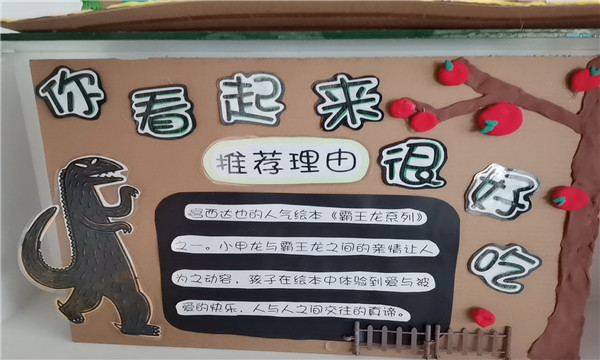 你看起来很好吃
推荐理由
宫西达也的人气绘本《霸王龙系列》
之一。小甲龙与霸王龙之间的亲情让人
为之动容，孩子在绘本中体验到爱与被
爱的快乐，人与人之间交往的真谛。